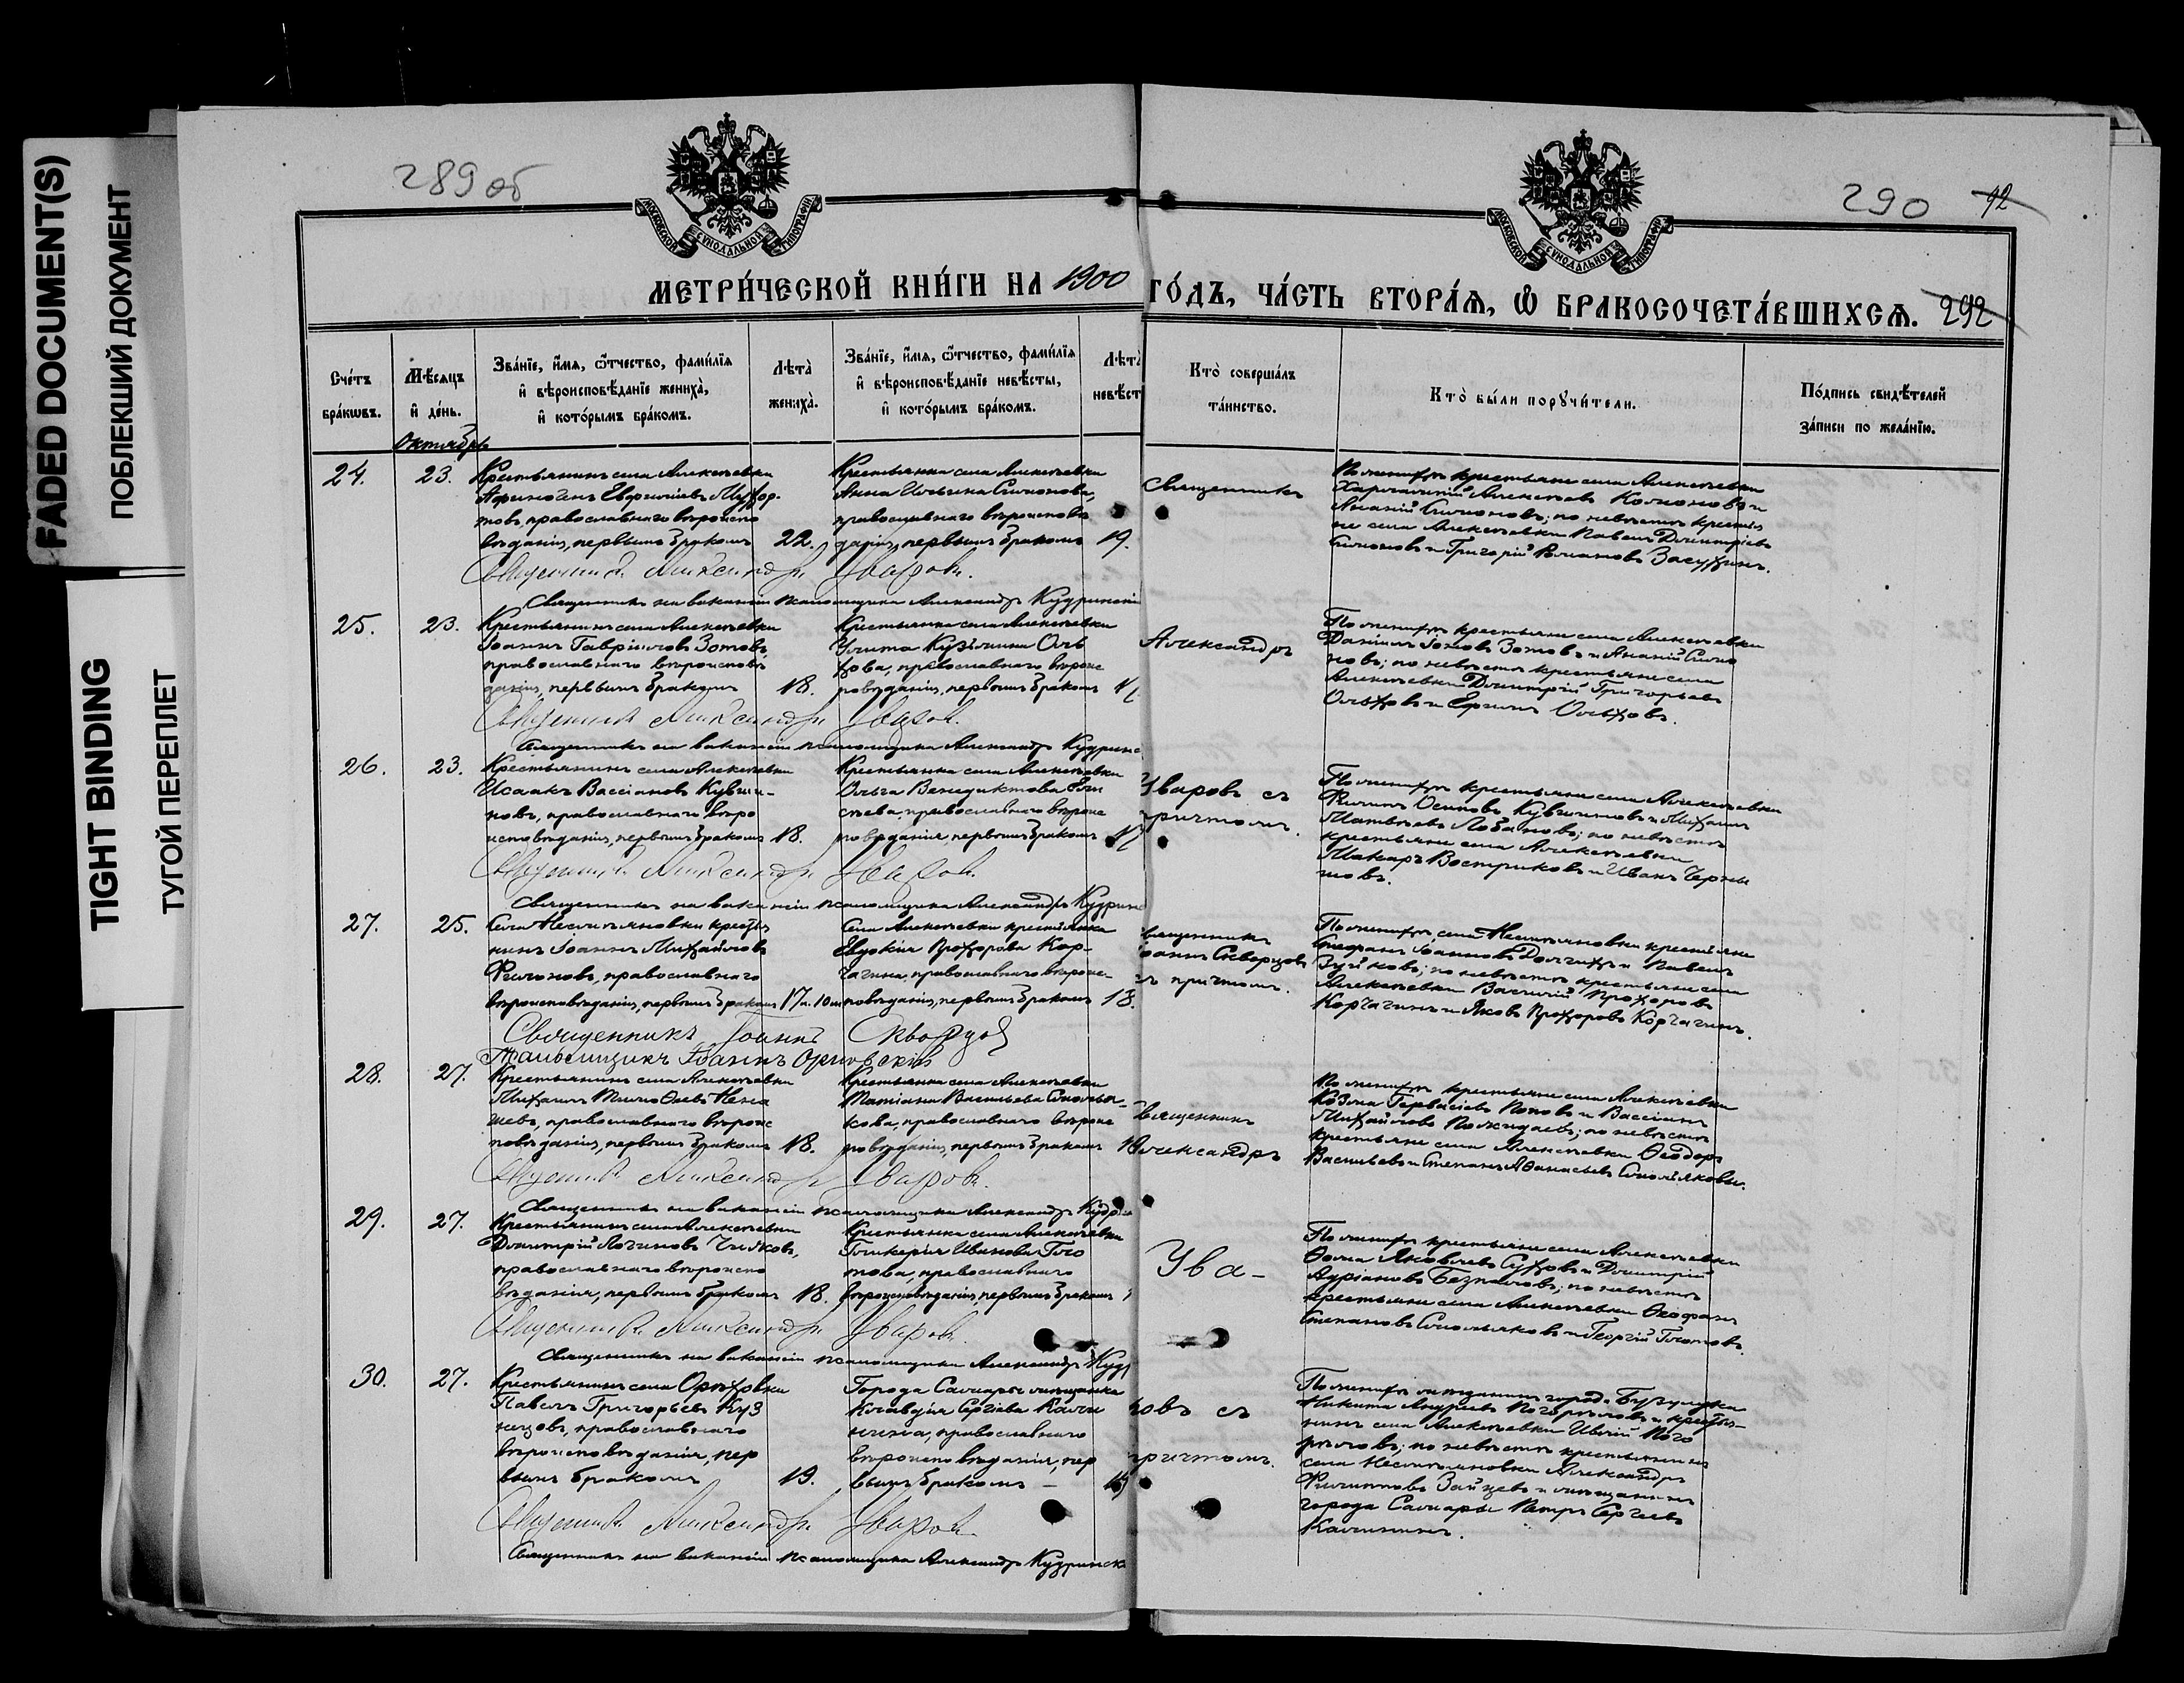 FADED DOCUMENT(S)
ПОБЛЕКШИЙ ДОКУМЕНТ
TIGHT BINDING
ТУГОЙ ПЕРЕПЛЕТ
289 об
290 92
МОСКОВСКОЙ СѴНОДАЛЬНОЙ ТИПОГРАФІИ
МОСКОВСКОЙ СѴНОДАЛЬНОЙ ТИПОГРАФІИ
МЕТРИ́ЧЕСКОЙ КНИ́ГИ НА 1900 ГО́ДЪ, ЧА́СТЬ ВТОРА́Ѧ, Ѽ БРАКОСОЧЕТА́ВШИХСѦ. 292
Сче́тъ бра́кѡвъ.
Мѣ́сѧцъ и҆ де́нь.
Зва́нїе, и҆́мѧ, ѻ҆́тчество, фами́лїѧ
и҆ вѣроисповѣ́данїе жениха̀,
и҆ кото́рымъ бра́комъ.
Лѣта̀ жениха̀.
Зва́нїе, и҆́мѧ, ѻ҆́тчество, фами́лїѧ
и҆ вѣроисповѣ́данїе невѣ́сты,
и҆ кото́рымъ бра́комъ.
Лѣта̀ невѣст
Кто̀ соверша́лъ
та́инство.
Кто̀ бы́ли порꙋчи́тели.
По́дпись свидѣ́телей
за́писи по жела́нїю.
Октябрь
24. 23.
Крестьянинъ села Алексѣевки
православнаго вѣроиспо
вѣданія, первымъ бракомъ 22.
Крестьянка села Алексѣевки
Анна Ильина Симонова,
православнаго вѣроиспов
данія, первымъ бракомъ 19.
Священникъ
По женихѣ крестьяне села Алексѣевки
Харлампій Алексѣевъ и
Ананій Симоновъ; по невѣстѣ крестья
не села Алексѣевки Павелъ Димитріевъ
Симоновъ и Григорій Романовъ
Священникъ Александръ Уваровъ.
Священникъ на вакансіи псаломщика Александръ Кудринскі
25. 23.
Крестьянинъ села Алексѣевки
Іоаннъ Гавріиловъ Зотовъ,
православнаго вѣроисповѣ
данія, первымъ бракомъ 18.
Крестьянка села Алексѣевки
Улита Кузьмина Оль
хова, православнаго вѣроис
повѣданія, первымъ бракомъ
Александръ
По женихѣ крестьяне села Алексѣевки
Даніилъ Зотовъ и Ананій Симо
новъ; по невѣстѣ крестьяне села
Алексѣевки Димитрій Григорьевъ
Ольховъ и Ольховъ.
Священникъ Александръ Уваровъ.
Священникъ на вакансіи псаломщика Александръ Кудринс
26. 23.
Крестьянинъ села Алексѣевки
Исаакъ Вассіановъ Кувши-
новъ, православнаго вѣро
исповѣданія, первымъ бракомъ 18.
Крестьянка села Алексѣевки
Ольга Венедиктова Ели
сѣева, православнаго вѣроис
повѣданія, первымъ бракомъ
Уваровъ съ
причтомъ.
По женихѣ крестьяне села Алексѣевки
Филиппъ Осиповъ Кувшиновъ и Михаилъ
Матвѣевъ Лобановъ; по невѣстѣ
крестьяне села Алексѣевки
Макаръ Востриковъ и Иванъ Черны
шовъ.
Священникъ Александръ Уваровъ.
Священникъ на вакансіи псаломщика Александръ Кудринс
27. 25.
Села Несмѣяновки крестья
нинъ Іоаннъ Михайловъ
Филоновъ, православнаго
вѣроисповѣданія, первымъ бракомъ 17 л. 10 м
Села Алексѣевки крестьянка
Евдокія Прохорова Кор-
чагина, православнаго вѣроис-
повѣданія, первымъ бракомъ 18.
вященникъ
оаннъ Скворцовъ
съ причтомъ.
По женихѣ села Несмѣяновки крестьяне
Стефанъ Іоанновъ Долгихъ и Павелъ
Зуйковъ; по невѣстѣ крестьяне села
Алексѣевки Василій Прохоровъ
Корчагинъ и Яковъ Прохоровъ Корчагинъ.
Священникъ Іоаннъ Скворцов
Псаломщикъ Іоаннъ Орловскій
28. 27.
Крестьянинъ села Алексѣевки
Михаилъ Тимоѳеевъ
православнаго вѣроис
повѣданія, первымъ бракомъ 18.
Крестьянка села Алексѣевки
Татіана Васильева Смолья-
кова, православнаго вѣроис
повѣданія, первымъ бракомъ
Священникъ
Александръ
По женихѣ крестьяне села Алексѣевки
Козма Гервасіевъ Поповъ и Вассіанъ
Михайловъ Пожидаевъ; по невѣстѣ
крестьяне села Алексѣевки Ѳеодоръ
Васильевъ и Степанъ Аѳанасьевъ Смольяковы.
Священникъ Александръ Уваровъ.
Священникъ на вакансіи псаломщика Александръ Кудри
29. 27.
Крестьянинъ села Алексѣевки
Димитрій Логиновъ Чижовъ,
православнаго вѣроиспо
вѣданія, первымъ бракомъ 18.
Крестьянка села Алексѣевки
Гликерія Иванова
православнаго
вѣроисповѣданія, первымъ бракомъ
Ува-
По женихѣ крестьяне села Алексѣевки
Ѳома Яковлевъ Суховъ и Димитрій
Адріановъ по невѣстѣ
крестьяне села Алексѣевки Ѳеофанъ
Степановъ Смольяковъ и Георгій
Священникъ Александръ Уваровъ.
Священникъ на вакансіи псаломщика Александръ Куд
30. 27.
Крестьянинъ села Орѣховки
Павелъ Григорьевъ Куз
нецовъ, православнаго
вѣроисповѣданія, пер
вымъ бракомъ 19.
Города Самары мѣщанка
Клавдія Сергіева Кали
нина, православнаго
вѣроисповѣданія, пер
вымъ бракомъ —
ровъ съ
причтомъ.
По женихѣ мѣщанинъ города Бузулука
Никита Андреевъ Погорѣловъ и крестья-
нинъ села Алексѣевки Пого
рѣловъ; по невѣстѣ крестьянинъ
села Несмѣяновки Александръ
Филипповъ Зайцевъ и мѣщанинъ
города Самары Петръ Сергіевъ
Калининъ.
Священникъ Александръ Уваровъ.
Священникъ на вакансіи псаломщика Александръ Кудринск